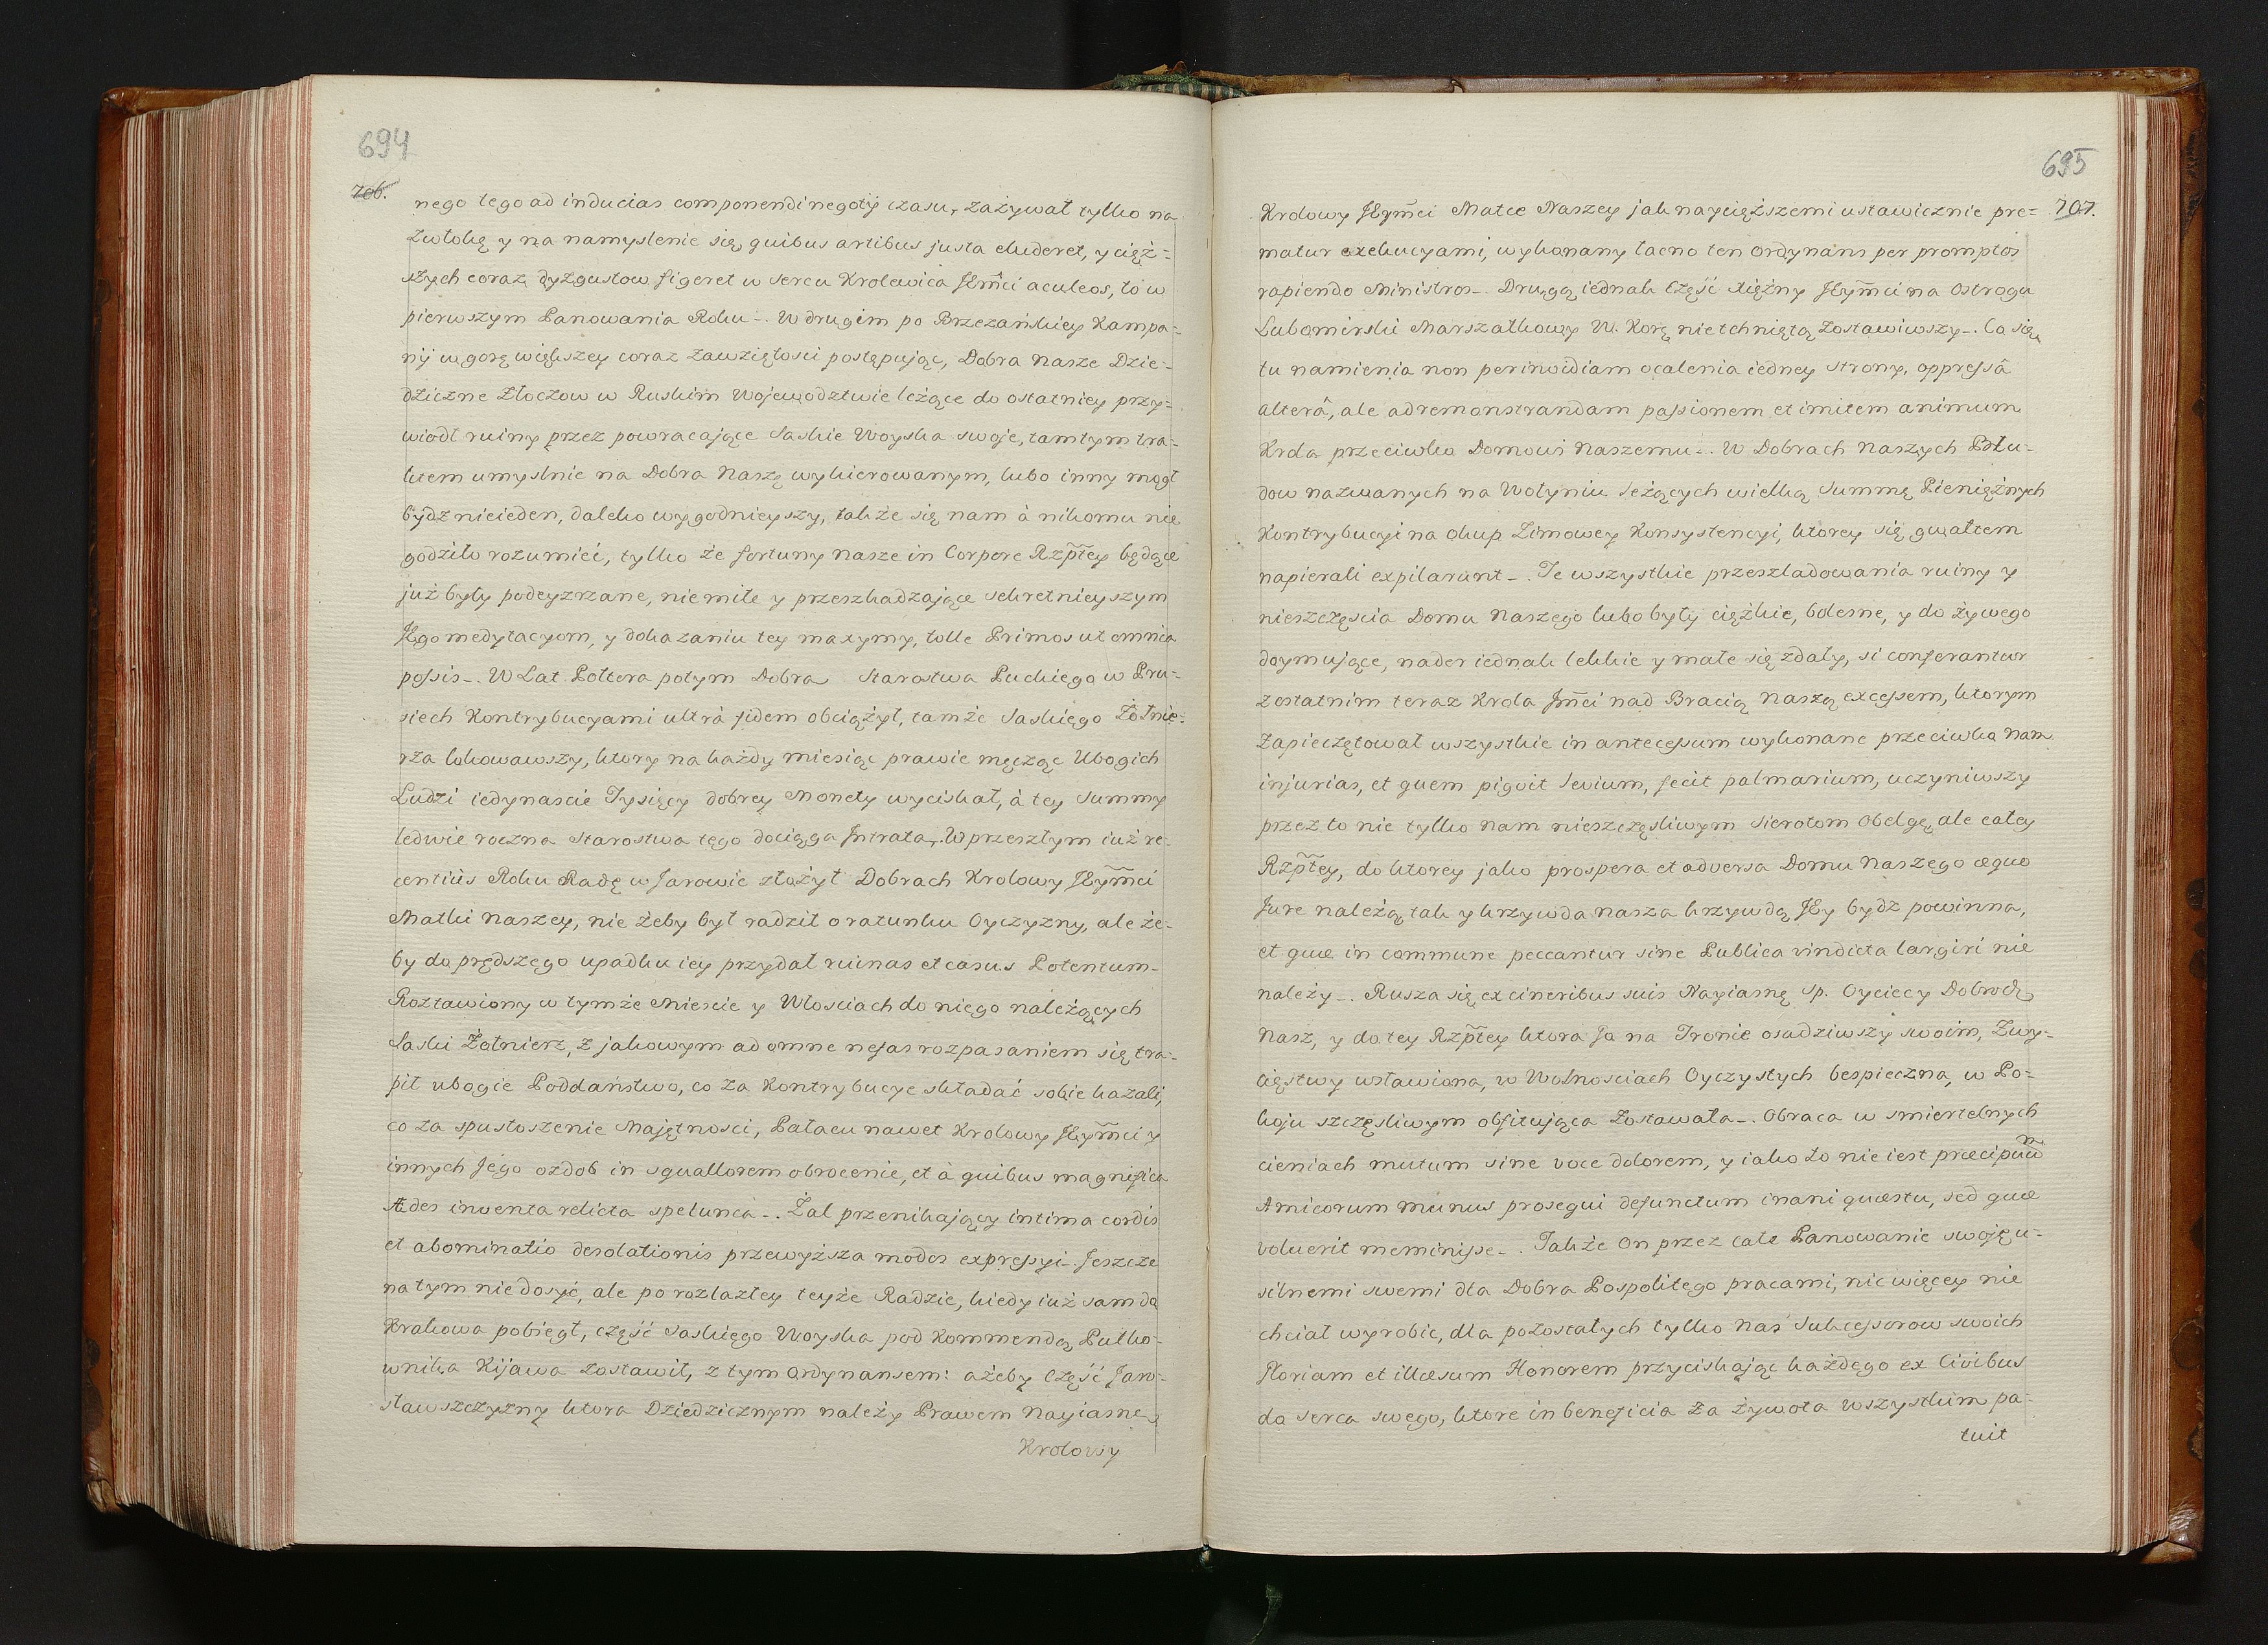 694
706.
nego tego ad inducias componendi negotÿ czasu, zażywał tylko na
zwłokę y na namyslenie się, quibus artibus justa eluderet, y cięż=
szych coraz dyzgustow figeret w sercu Krolewica JEm̃ci aculeos, to w
pierwszym Panowania Roku -. W drugim po Brzezańskiey Kampa=
nij w gorę większey coraz zawziętosci postępując, Dobra nasze Dzie=
dziczne Złoczow w Ruskim Wojewodztwie leżące do ostatniey przy=
wiodł ruiny przez powracające Saskie Woyska swoje, tamtym tra=
ktem umyslnie na Dobra Naszę wykierowanym, lubo inny mogł
bydz nieieden, daleko wygodnieyszy, także się nam à nikomu nie
godziło rozumieć, tylko że fortuny nasze in Corpore Rzp̃tey będące
już były podeyzrzane, niemiłe y przeszkadzające sekretnieyszym
JEgo medytacyom, y dokazaniu tey maxymy, tolle Primos ut omnia
possis -. W Lat Połtora potym Dobra Starostwa Puckiego w Pru=
siech Kontrybucyami ultrà fidem obciążył, tamże Saskięgo Żołnie=
rza lokowawszy, ktory na każdy miesiąc prawie męcząc Ubogich
Ludzi iedynascie Tysięcy dobrey Monety wyciskał, à tey Summy
ledwie roczna Starostwa tęgo dociąga Jntrata,. W przeszłym iuż re=
centiùs Roku Radę w Jarowie złożył Dobrach Krolowy JEym̃ci
Matki naszey, nie żeby był radził o ratunku Oyczyzny, ale że=
by do prędszęgo upadku iey przydał ruinas et casus Potentum -
Roztawiony w tymże Miescie y Włosciach do niego należących
Saski Żołnierz, z jakowym ad omne nefas rozpasaniem się tra=
pił ubogie Poddaństwo, co za Kontrybucye składać sobie kazali,
co za spustoszenie Majętnosci, Pałacu nawet Krolowy JEym̃ci y
innych Jego ozdob in squallorem obrocenie, et à quibus magnifica
Ædes inventa relicta spelunca -. Żal przenikający intima cordis
et abominatio desolationis przewyższa modos expressyi -. Jeszcze
na tym nie dosyć, ale po rozlazłey teyże Radzie, kiedy iuż sam do
Krakowa pobiegł, część Saskięgo Woyska pod Kommendą Pułko=
wnika Kijawa zostawił, z tym Ordynansem: ażeby Część Jaro=
sławszczyzny ktora Dziedzicznym należy Prawem Nayiasney
Krolowy
695
707.
Krolowy JEym̃ci Matce Naszey jak naycięższemi ustawicznie pre=
matur exekucyami, wykonany łacno ten Ordynans per promptos
rapiendo Ministros -. Drugą iednak Część Xiężny JEym̃ci na Ostrogu
Lubomirski Marszałkowy W. Korę nietchniętą zostawiwszy -. Co się
tu namienia non per invidiam ocalenia iedney strony, oppressâ
alterâ, ale ad remonstrandam passionem et imitem animum
Krola przeciwko Domowi Naszemu -. W Dobrach Naszych Połu=
dow nazwanych na Wołyniu leżących wielką Summę Pieniężnych
Kontrybucyi na Okup Zimowey Konsystencyi, ktorey się gwałtem
napierali expilarunt -. Te wszystkie przeszladowania ruiny y
nieszczęscia Domu Naszego lubo były ciężkie, bolesne, y do żywego
doymujące, nader iednak lekkie y małe się zdały, si conferantur
z ostatnim teraz Krola Jm̃ci nad Bracią naszą excessem, ktorym
zapieczętował wszystkie in antecessum wykonane przeciwko nam
injurias, et quem piguit Sevium, fecit palmarium, uczyniwszy
przez to nie tylko nam nieszczęsliwym Sierotom Obelgę, ale całey
Rzp̃tey, do ktorey jako prospera et adversa Domu Naszego æquo
Jure należą, tak y krzywda nasza krzywdą JEy bydz powinna,
et quæ in commune peccantur sine Publica vindicta largiri nie
należy -. Rusza się ex cineribus suis Nayiasnę Sp. Oyciecy Dobrodz
Nasz, y do tey Rzp̃tey ktora Ja na Tronie osadziwszy swoim, Zwy=
cięstwy wsławiona, w Wolnosciach Oyczystych bespieczna, w Po=
koju szczęsliwym obfitująca zostawała -. Obraca w smiertelnych
cieniach mutum sine voce dolorem, y iako to nie iest præcipuum
Amicorum munus prosequi defunctum inani quæstu, sed quæ
voluerit meminisse -. Także On przez całe Panowanie swoję u=
silnemi swemi dla Dobra Pospolitego pracami, nic więcey nie
chciał wyrobic, dla pozostałych tylko nas Sukcessorow swoich
Floriam et illæsum Honorem przyciskając każdęgo ex Civibus
do serca swego, ktore in beneficia za żywota wszystkim pa=
tuit